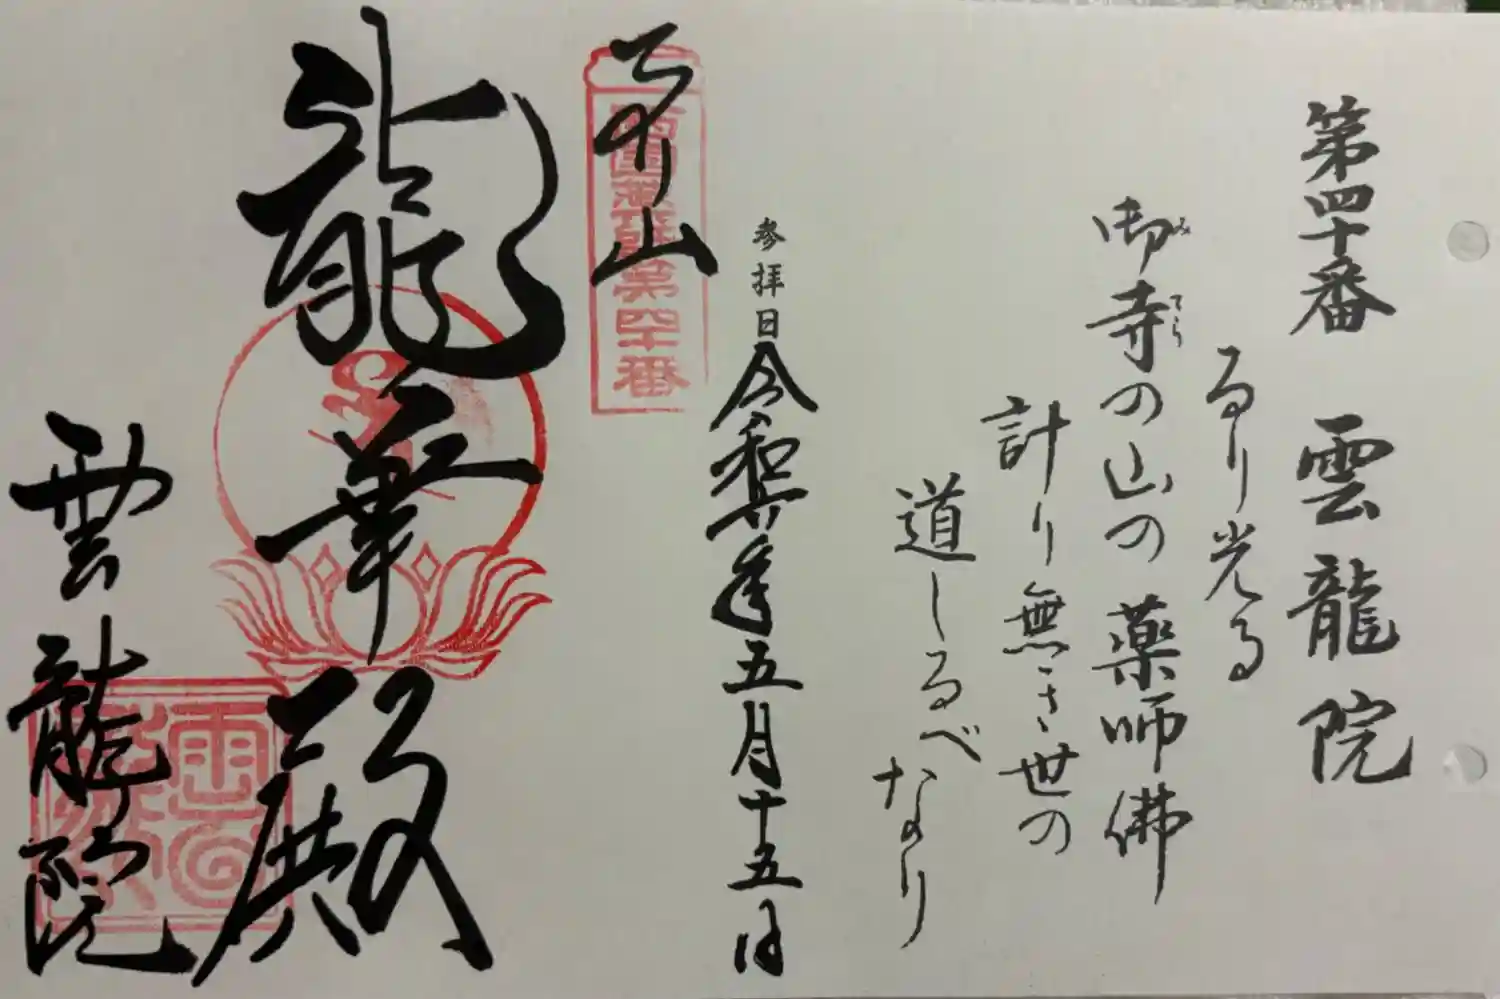 第四十番 雲龍院
るり光る
御寺の山の薬師佛
み
てら
計り無き世の
道しるべなり
参拝日 令和六年五月十五日
るり山
西國薬師第四十番
龍華殿
雲龍院